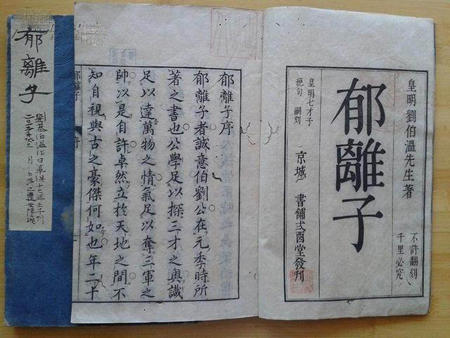 皇明劉伯溫先生著
不許翻刻
千里必究
郁離子
皇明七才子
絶句 嗣刻
京城 書鋪弍酉堂發刊
郁離子序
郁離子者誠意伯劉公在元季時所
著之書也公學足以探三才之奧識
足以達萬物之情氣足以奪三軍之
帥以是自許卓然立於天地之間不
知自視與古之豪傑何如也年二十
郁離子